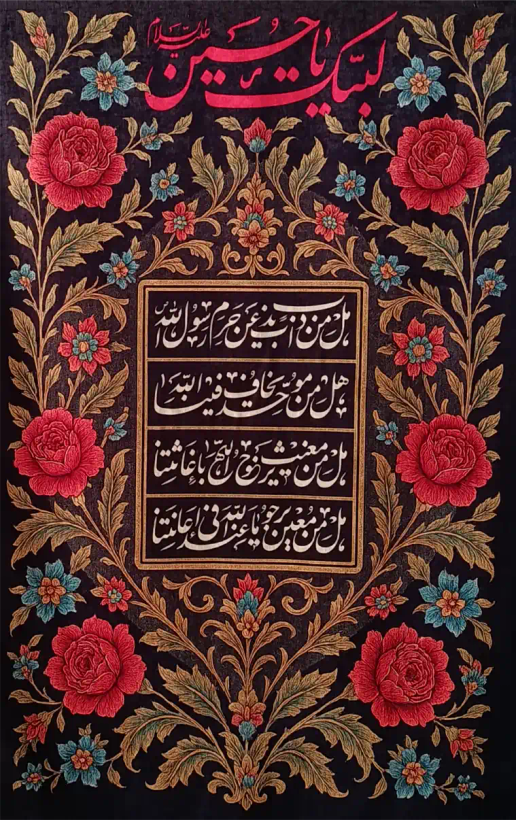 لبیک یا حسین علیه السلام
هل من ذاب یذب عن حرم رسول الله
هل من موحد یخاف الله فینا
هل من مغیث یرجو الله باغاثتنا
هل من معین یرجو ما عند الله فی اعانتنا